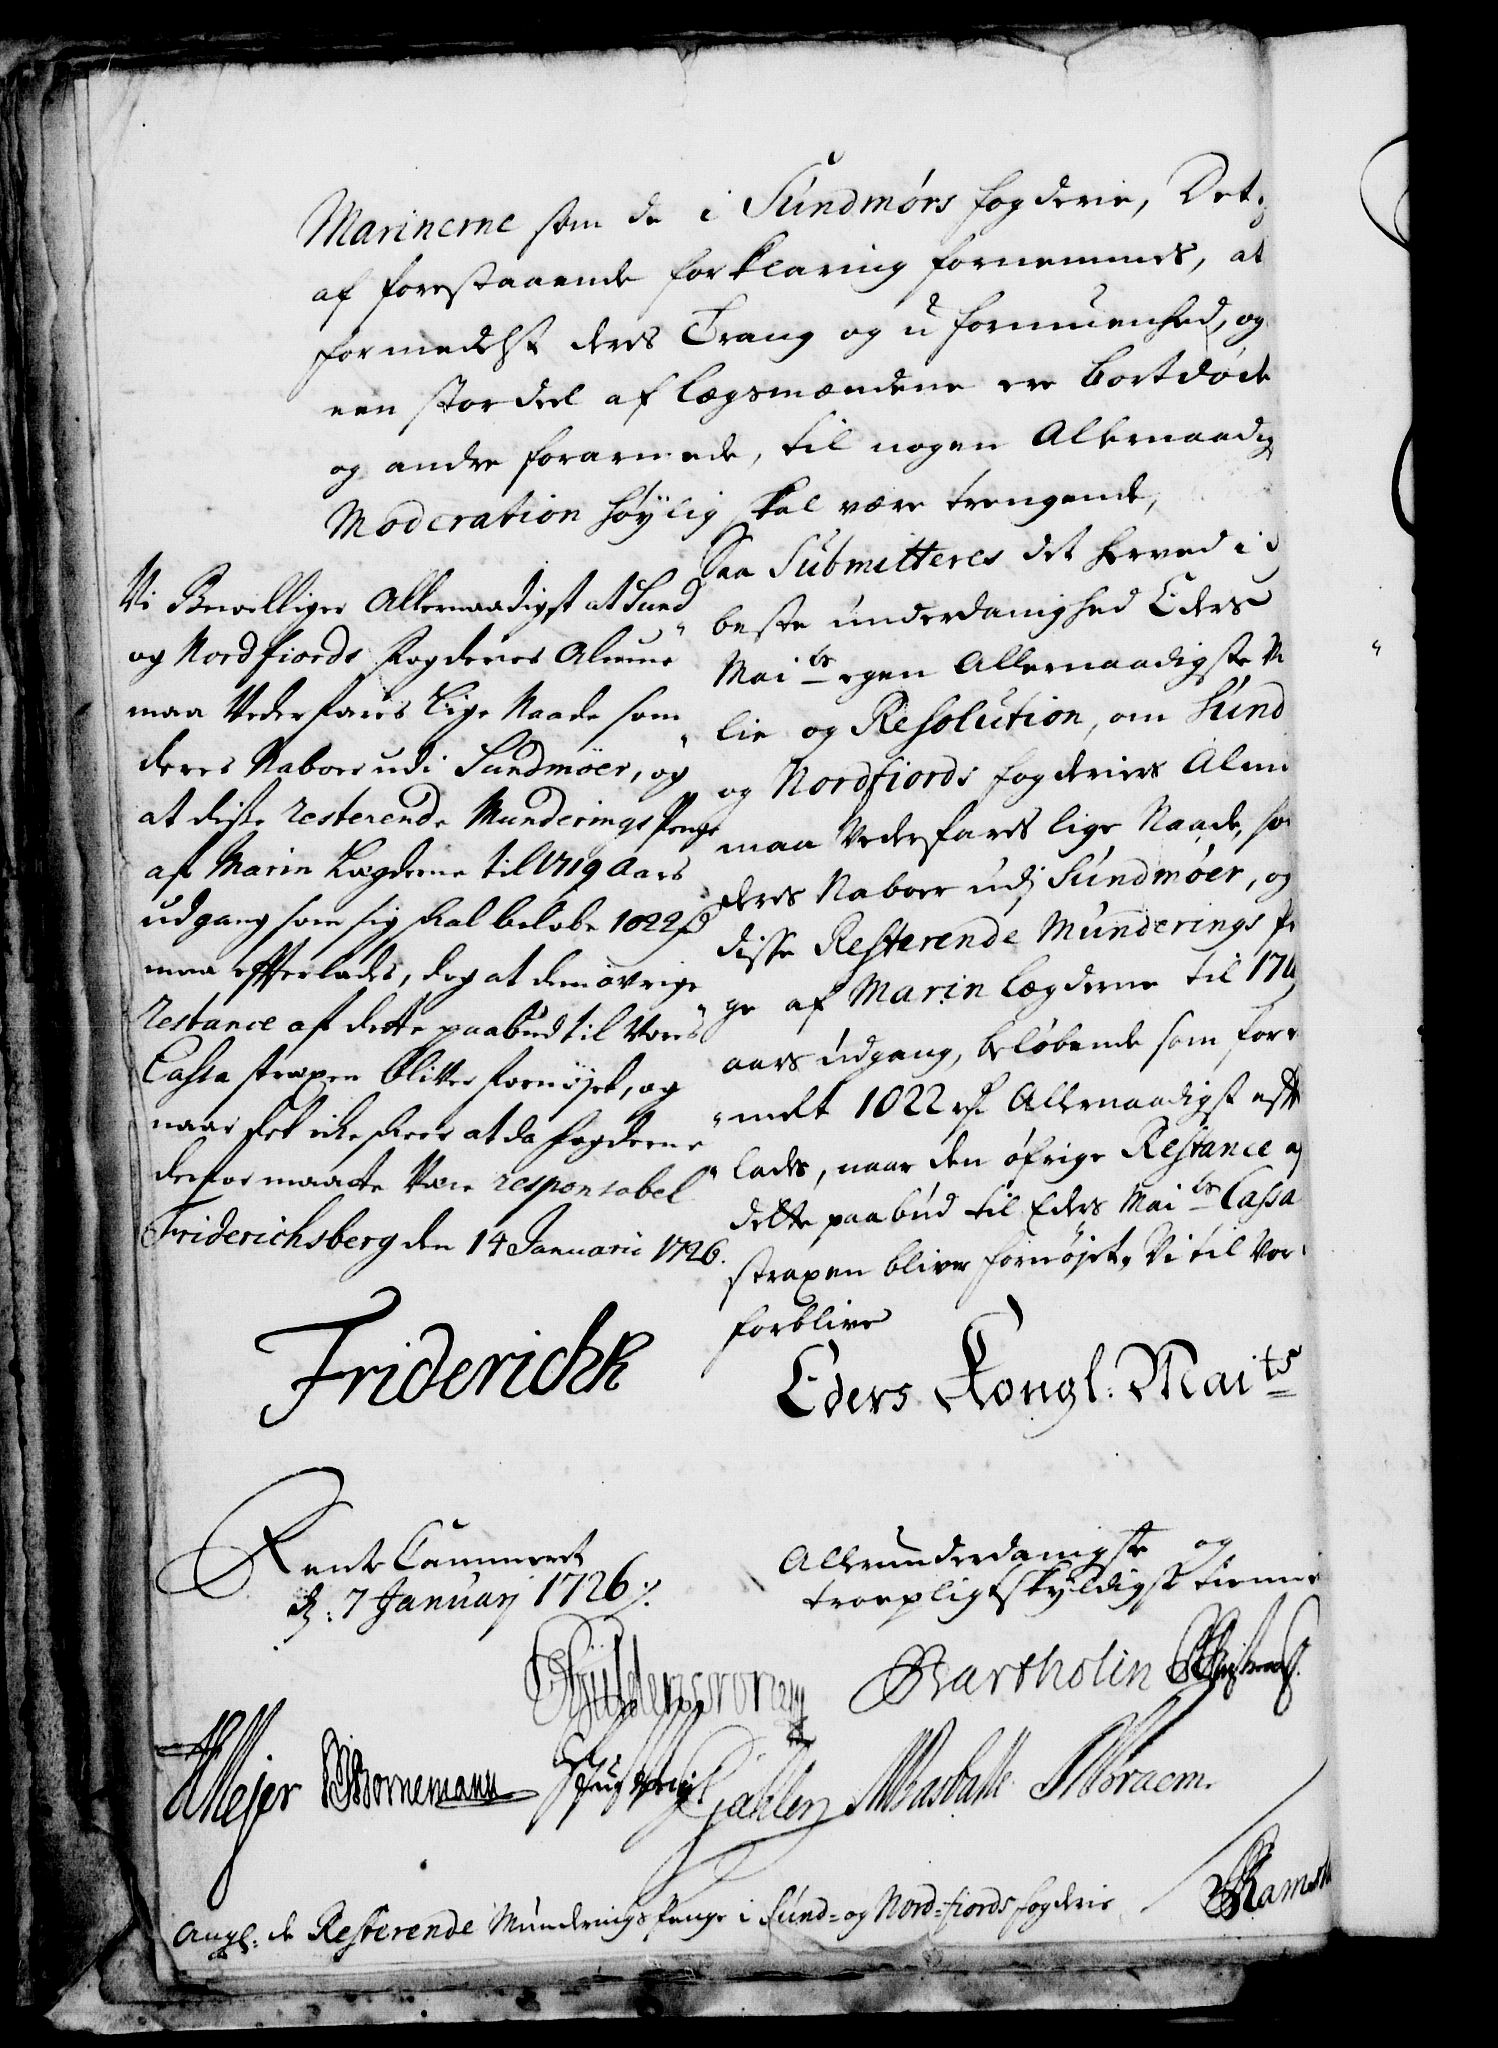 Marinerne som de i Sundmørs fogderie, Det
af forestaaende forklaring fornemmes, at
formedelst deres Trang og uformuenhed, og
een stor deel af lægsmændene ere bortdöde
og andre forarmede, til nogen Allernaadig
Moderation höÿlig skal være trengende,
Saa Submitteres det herved i
beste underdanighed Eders
Maits egen Allernaadigste Vi
lie og Resolution, om Sund
og Nordfiords fogderiers Almu
maa Vederfares lige Naade, so
deres Naboer udj Sundmöer, og
disse Resterende Munderings Pe
ge af Marin lægderne til 171
aars udgang, belöbende som for
meldt 1022 rd Allernaadigst efft
lades, naar den öfrige Restance af
dette paabud til Eders Maits Cassa
straxen bliver fornöjet, Vi til Vor
forblive
Eders Kongl: Maits
Vi Bevilliger Allernaadigst at Sund
og Nordfiords Fogderies Almue
maa Vederfares Lige Naade som
deres Naboer udi Sundmöer, og
at disse resterende Munderings Penge
af Marin Lægderne til 1719 Aars
udgang som sig skal belöbe 1022 rd
maa effterlades, dog at den övrige
restance af dette paabud til Vores
Cassa straxen bliver fornöjet, og
naar det icke skeer at da fogderne
derfor maatte Være responsabel
Friderichsberg den 14 Januarii 1726.
Friderich R
Rente Cammeret
d: 7 Januarj 1726
Allerunderdanigste og
troepligtskyldigst tienner
Güldencrone
Bartholin
HMejer
Bornemann
Gähler
Ramsh
Angl: de Resterende Munderings Penge i Sund= og Nord=fiords fogderie